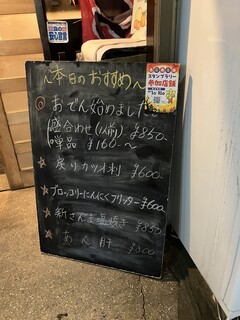 ～本日のおすすめ～
スタンプラリー
参加店舗
◎おでん始めました
盛合わせ(1人前) ¥850-
単品 ¥160-～
★戻りカツオ刺 ¥600-
★ブロッコリーにんにくフリッター ¥600-
★新さんま塩焼き ¥850
★あん肝 ¥500-